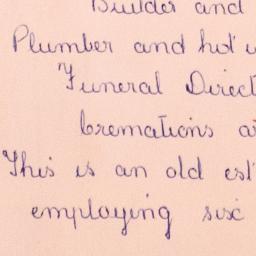 Builder and
Plumber and hot
"Funeral Direct
bremations a
This is an old est
employing sisc